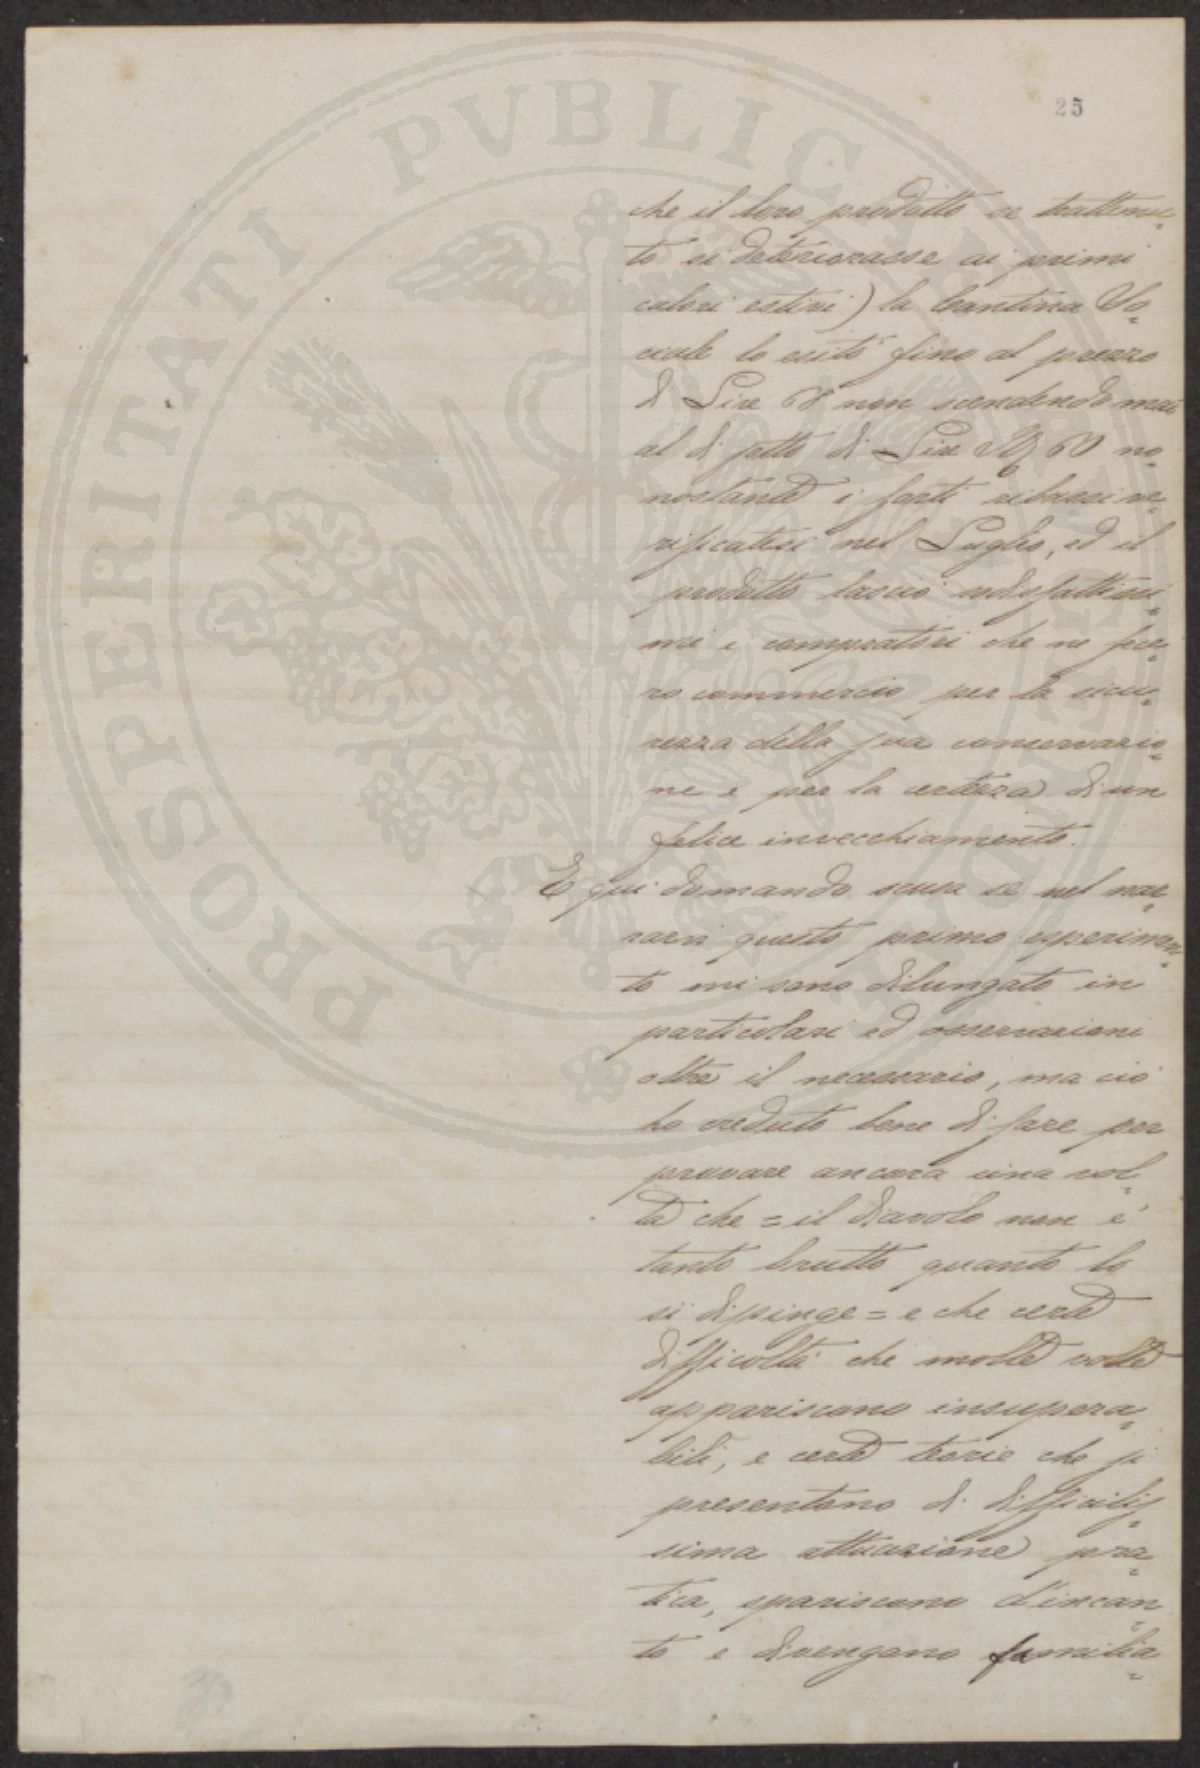 25
che il loro prodotto se trattenu=
to si deteriorasse ai primi
calori estivi) la Cantina So=
ciale lo esitò fino al prezzo
di Lire 68 non scendendo mai
al di sotto di Lire 60 no=
nostante i forti ribassi ve=
rificatisi nel Luglio, ed il
prodotto lasciò sodisfattissi=
mi i compratori che ne fece=
ro commercio per la sicu=
rezza della sua conservazio=
ne e per la certezza di un
felice invecchiamento.
E qui domando scusa se nel nar=
rarvi questo primo esperimen=
to mi sono dilungato in
particolari ed osservazioni
oltre il necessario, ma ciò
ho creduto bene di fare per
provare ancora una vol=
ta che = il diavolo non è
tanto brutto quanto lo
si dipinge = e che certe
difficoltà che molte volte
appariscono insupera=
bili, e certe teorie che si
presentono di difficilis=
sima attuazione pra=
tica, spariscono d'incan=
to e divengano familia=
PROSPERITATI PVBLICAE AVGENDAE